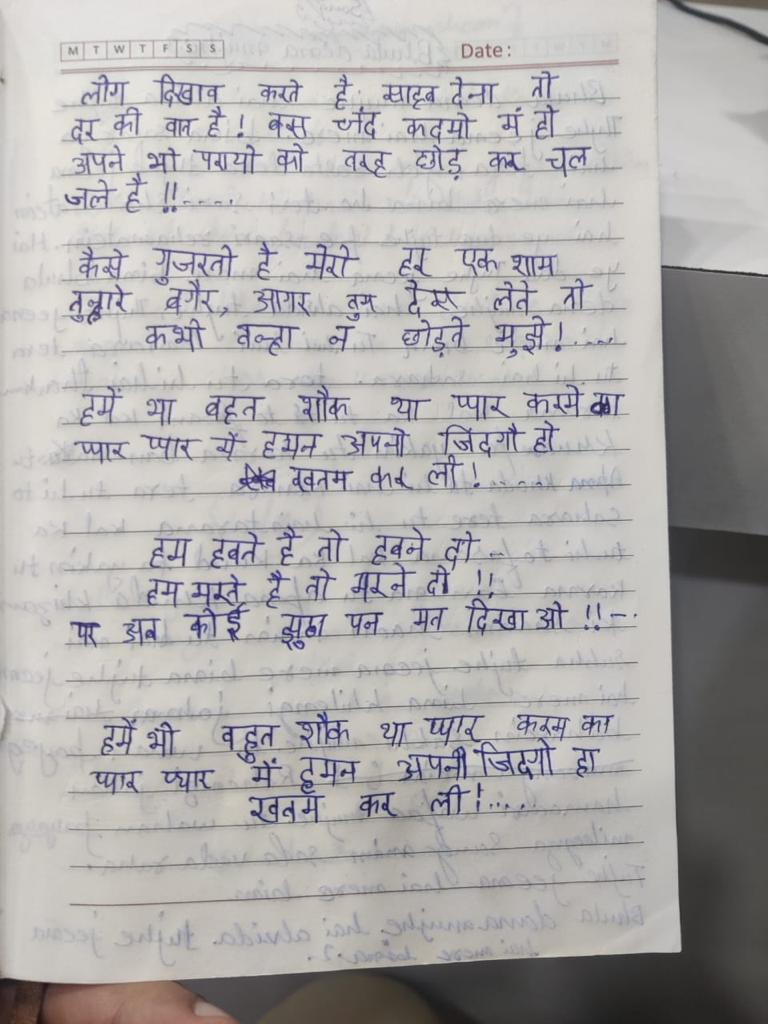 M T W T F S S Date:
लोग दिखाव करते है साहब देना तो
दूर की बात है! बस चंद कदमो मं हो
अपने भो परायो को तरह छोड़ कर चल
जले है !!.....
कैसे गुजरतो है मेरो हर एक शाम
तुम्हारे बगैर, आगर तुम देख लेते तो
कभी तन्हा न छोड़ते मुझे!.....
हमें भा बहत शौक था प्यार करमे का
प्यार प्यार में हमन अपनो जिंदगी हो
खतम कर ली!.....
हम हबते है तो हबने दो..
हम मरते है तो मरने दो !!
पर अब कोई झुठा पन मत दिखा ओ !!-.
हमें भी बहुत शौक था प्यार करम का
प्यार प्यार में हमन अपनी जिदगो हा
खतम कर ली!....